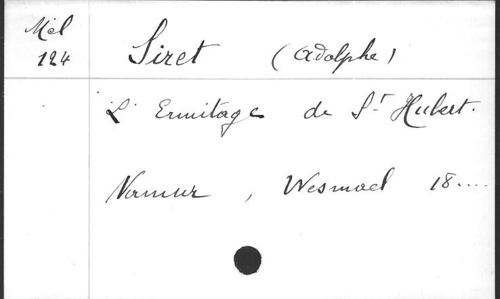 Mél
124
Siret (Adolphe)
L'Ermitage de St Hubert.
Namur, Wesmael 18....